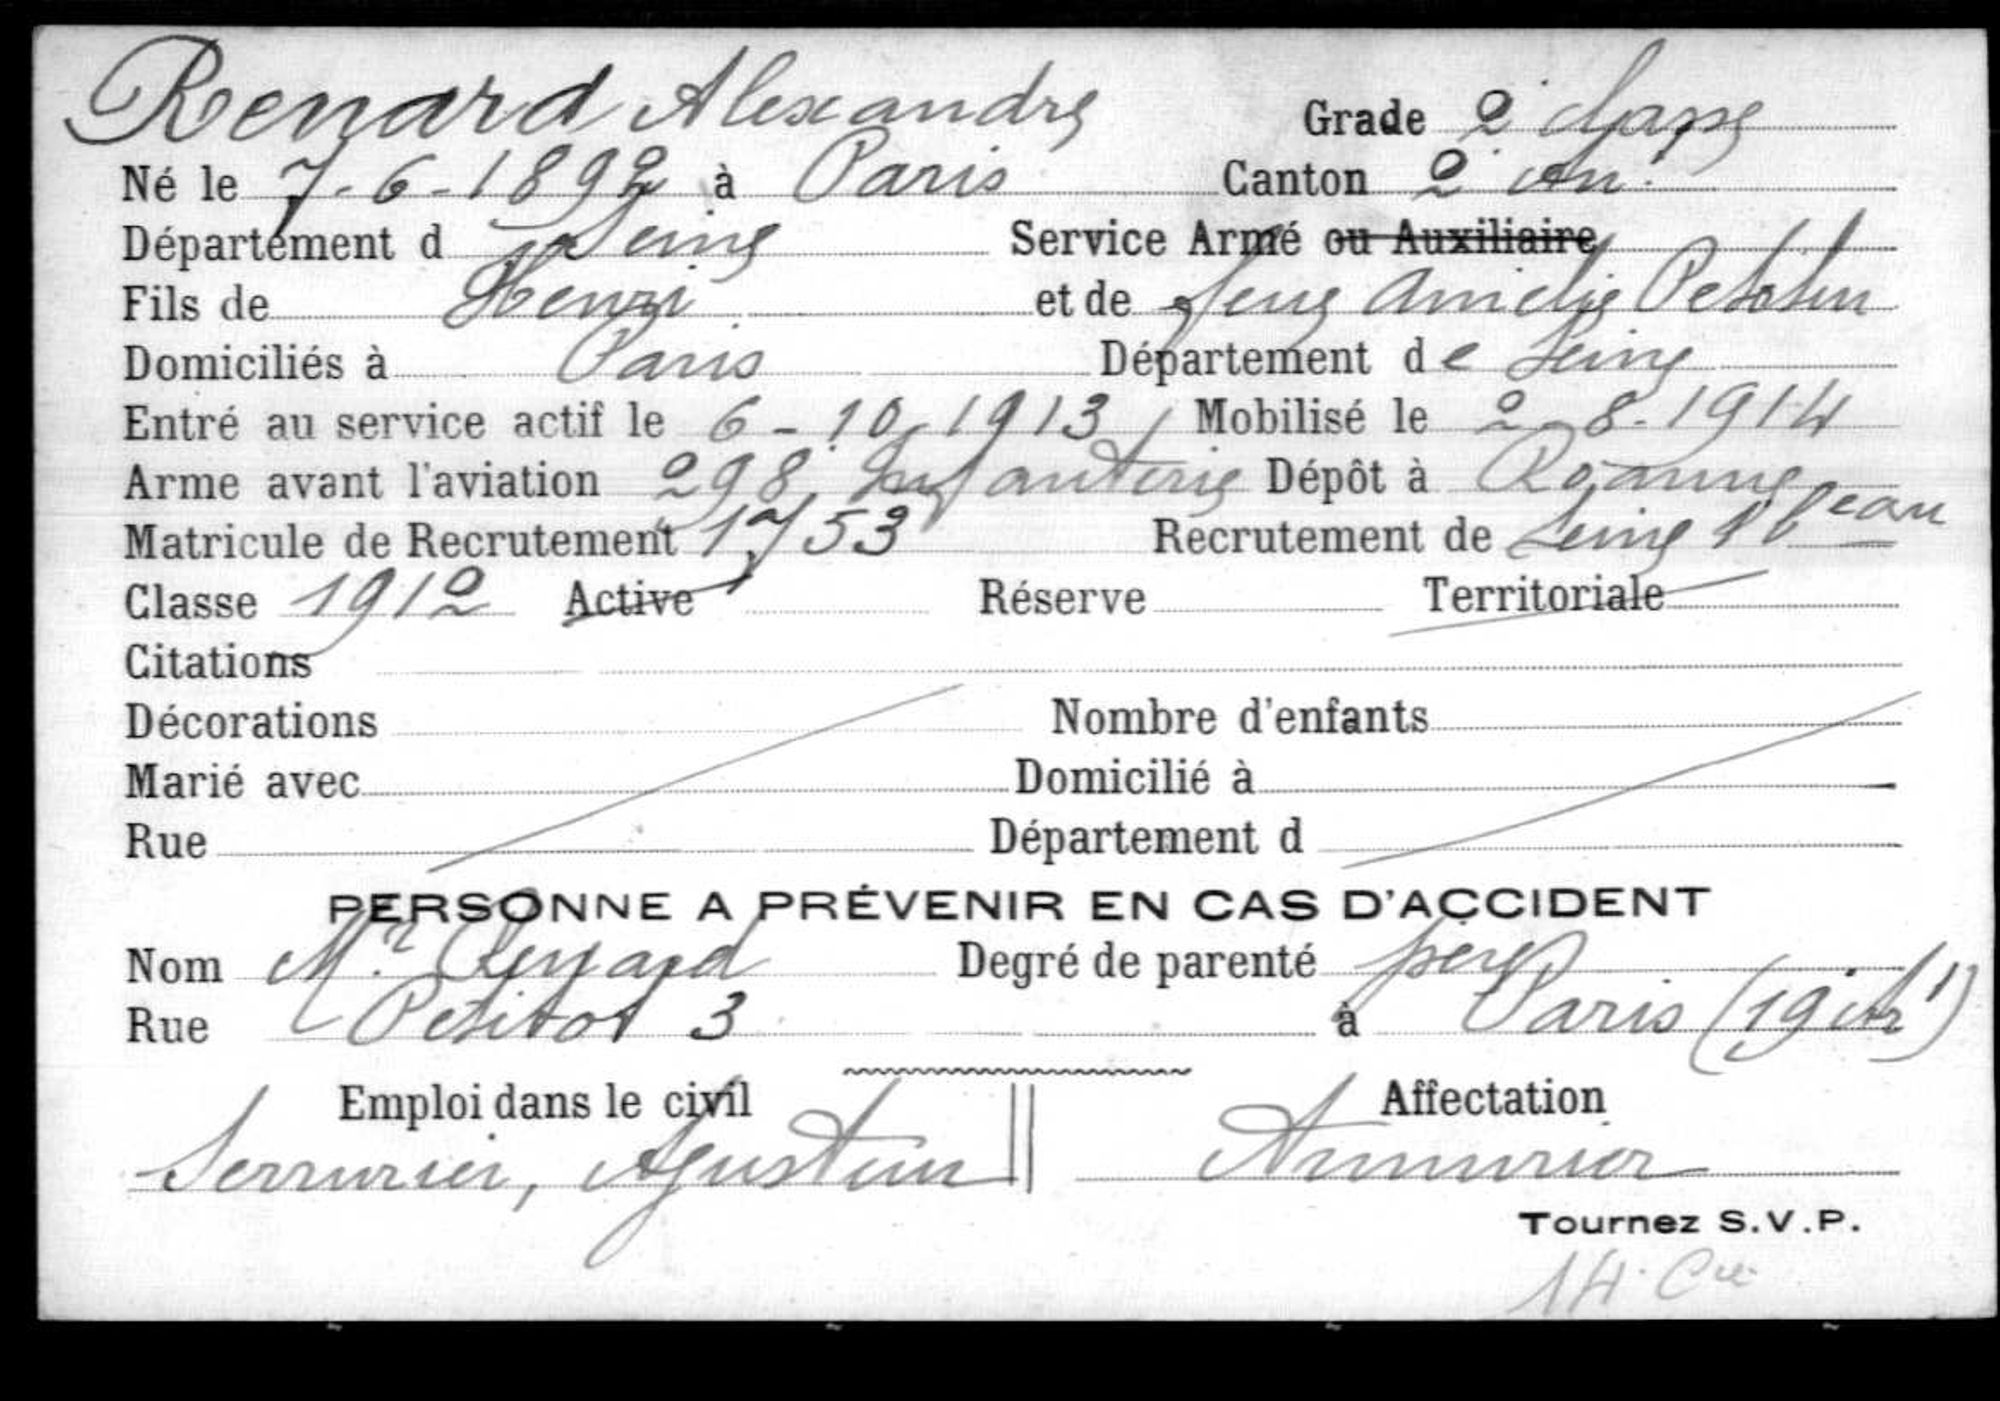 Renard Alexandre Grade 2e classe
Né le 7-6-1892 à Paris Canton 2e Arr.
Département d Seine Service Armé ou Auxiliaire
Fils de Henri et de feue Amélie Petotin
Domiciliés à Paris Département de Seine
Entré au service actif le 6-10-1913 Mobilisé le 2-8-1914
Arme avant l'aviation 298e Infanterie Dépôt à Roanne
Matricule de Recrutement 1753 Recrutement de Seine 1er beau
Classe 1912 Active Réserve Territoriale
Citations
Décorations Nombre d'enfants
Marié avec Domicilié à
Rue Département d
PERSONNE A PRÉVENIR EN CAS D'ACCIDENT
Nom Mr Renard Degré de parenté père
Rue Petitot 3 à Paris (19e Arr)
Emploi dans le civil Affectation
Serrurier, Ajusteur Armurier
Tournez S.V.P.
14e Cie